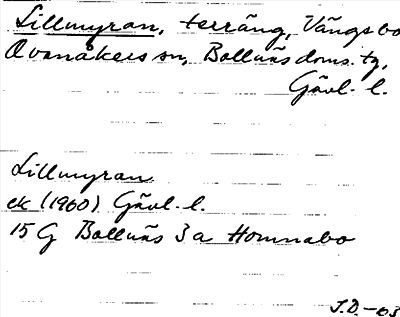 Lillmyran, terräng, Vängsbo
Ovanåkers sn, Bollnäs doms. tg,
Gävl. l.
Lillmyran
ek (1960) Gävl. l.
15 G Bollnäs 3a Homnabo
J.D.-63